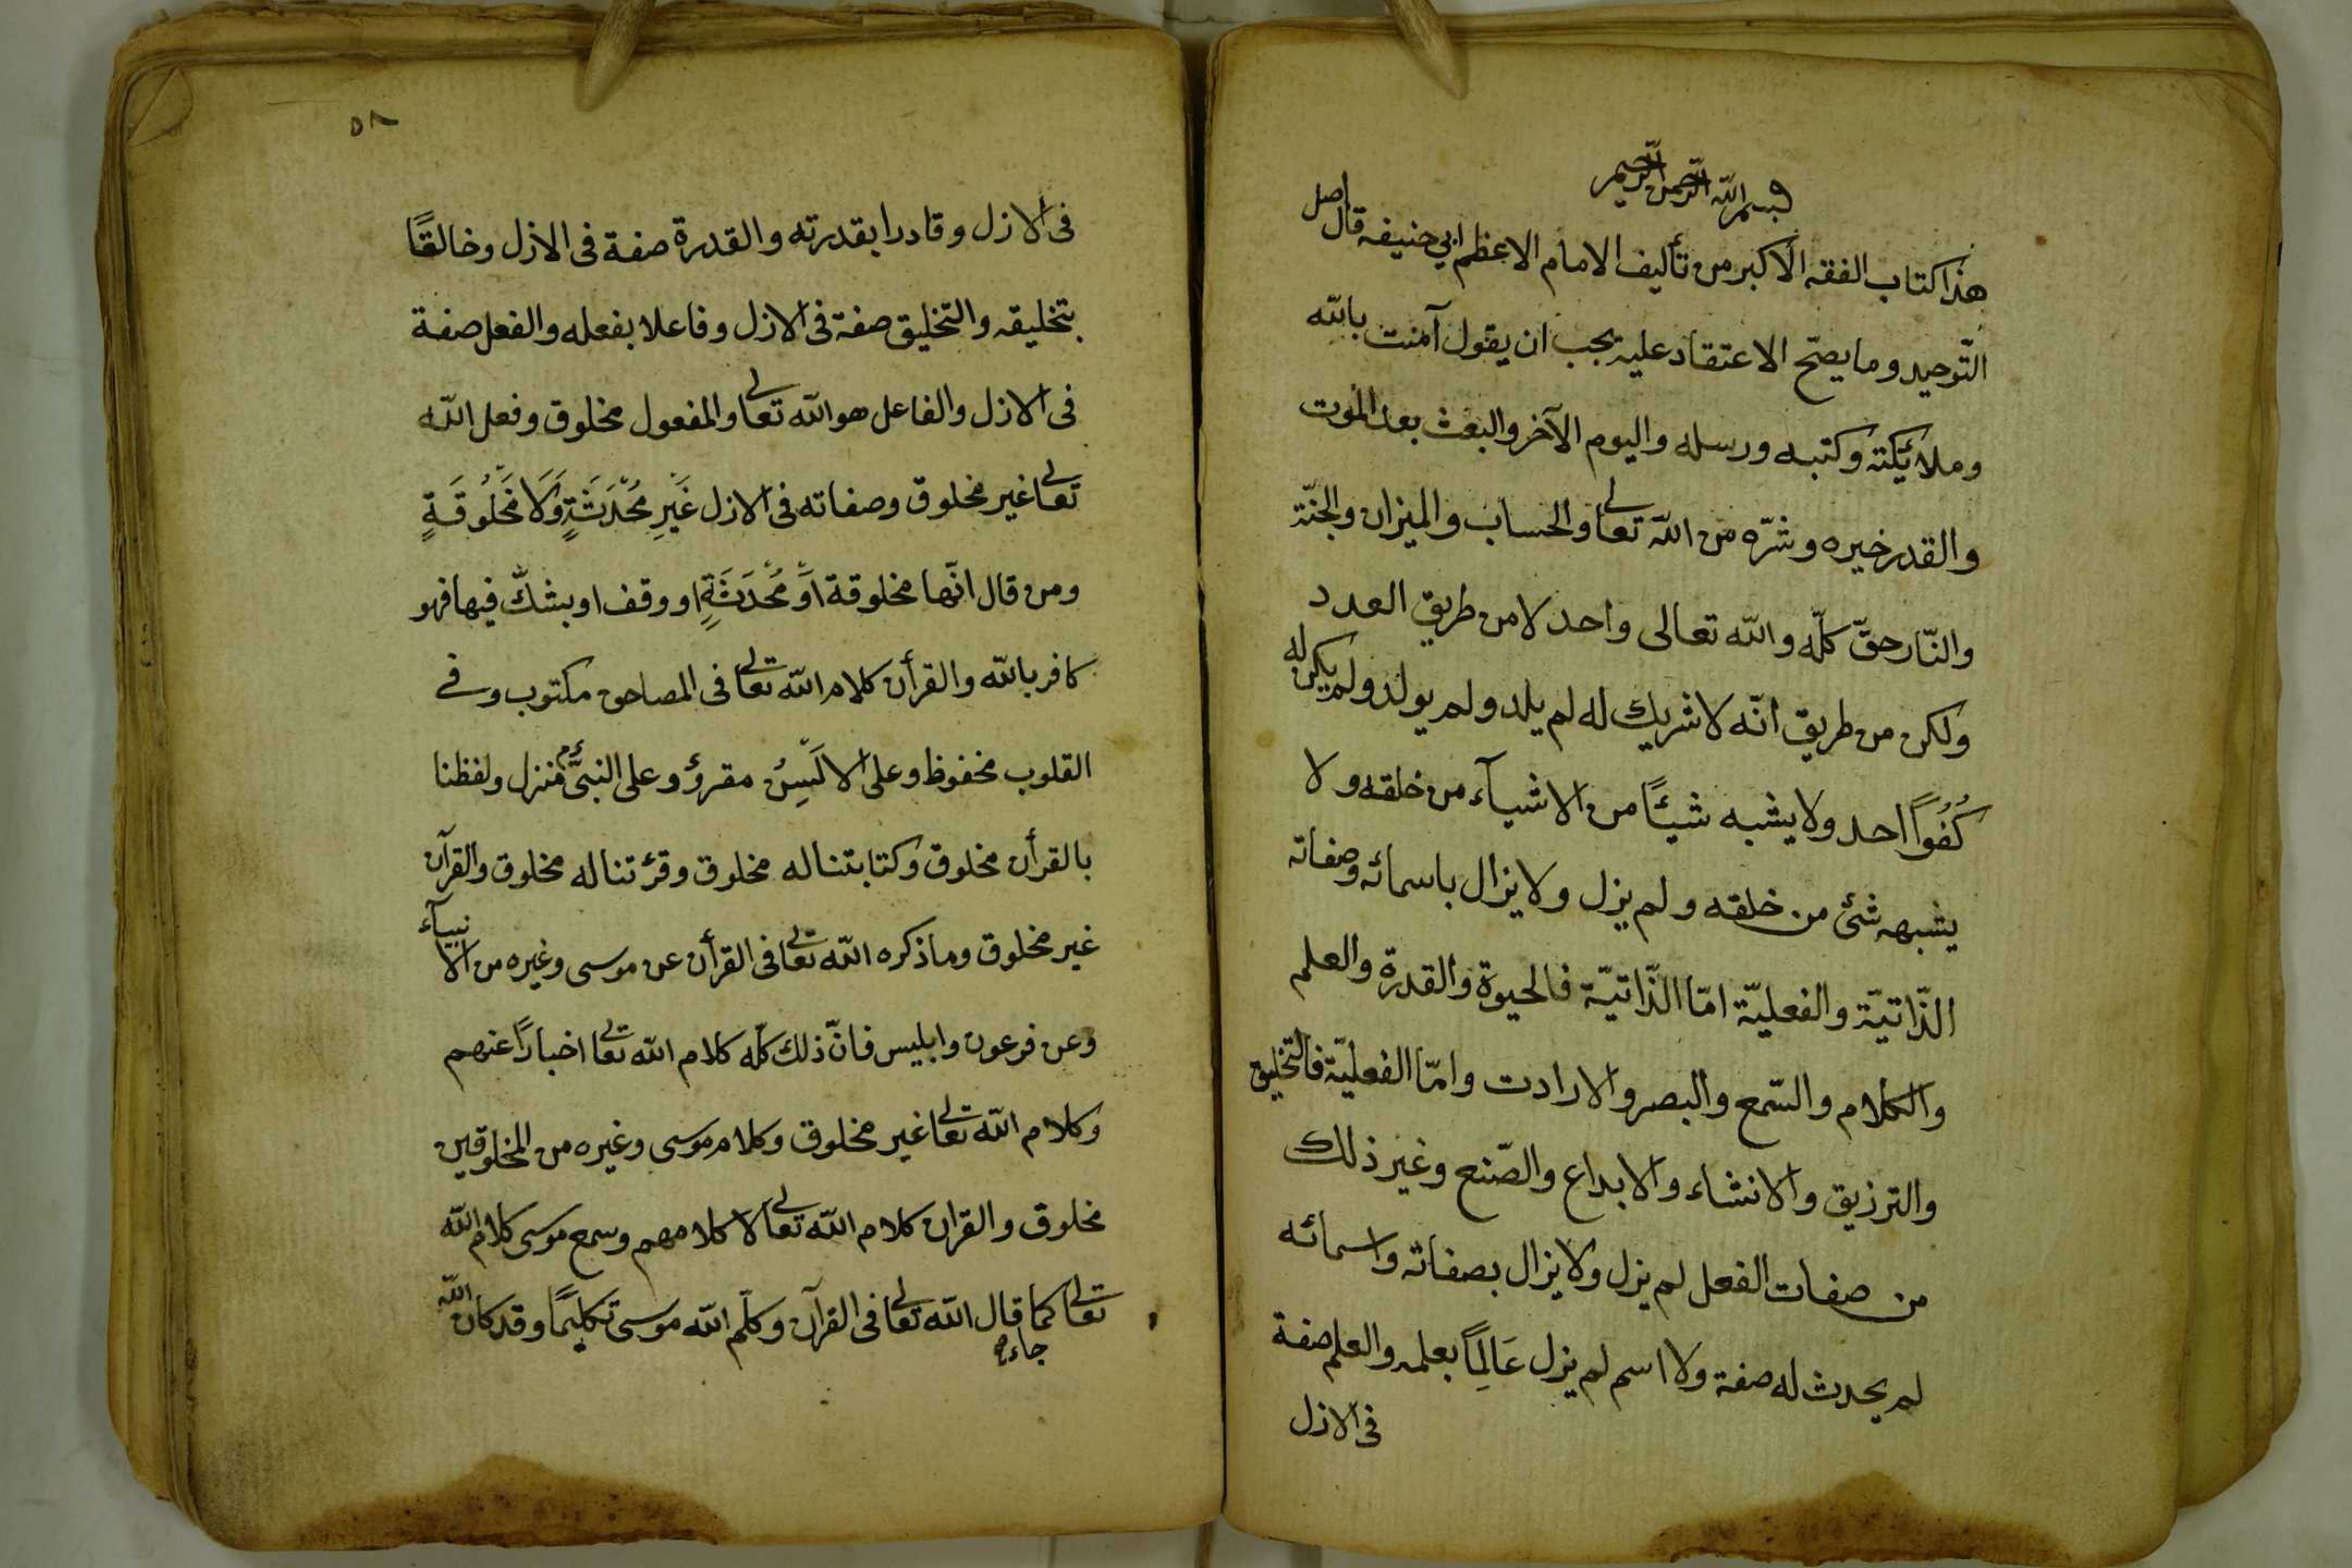 بسم الله الرحمن الرحيم
هذا كتاب الفقه الاكبر من تأليف الامام الاعظم ابي حنيفه قال اصل
التّوحيد وما يصحّ الاعتقاد عليه يجب ان يقول آمنت بالله
وملائكته وكتبه ورسله واليوم الآخر والبعث بعد الموت
والقدر خيره وشرّه من الله تعالى والحساب والميزان والجنّة
والنّار حقّ كلّه والله تعالى واحد لا من طريق العدد
ولكن من طريق انّه لا شريك له لم يلد ولم يولد ولم يكن له
كُفُوًا احد ولا يشبه شيئًا من الاشيآء من خلقه ولا
يشبهه شئ من خلقه ولم يزل ولا يزال باسمائه وصفاته
الذّاتيّة والفعليّة امّا الذّاتيّة فالحيوة والقدرة والعلم
والكلام والسّمع والبصر والارادت وامّا الفعليّة فالتخليق
والترزيق والانشاء والابداع والصّنع وغير ذلك
من صفات الفعل لم يزل ولا يزال بصفاته واسمائه
لم يحدث له صفة ولا اسم لم يزل عَالِمًا بعلمه والعلم صفة
فى الازل
٥٨
فى الازل وقادرا بقدرته والقدرة صفة فى الازل وخالقًا
بتخليقه والتخليق صفة فى الازل وفاعلا بفعله والفعل صفة
فى الازل والفاعل هو الله تعالى والمفعول مخلوق وفعل الله
تعالى غير مخلوق وصفاته فى الازل غَيْرِ مُحْدَثَةٍ وَلَا مَخْلُوقَةٍ
ومن قال انّها مخلوقة اَوْ مُحْدَثَةٍ او وقف او بشكّ فيها فهو
كافر بالله والقرأن كلام الله تعالى فى المصاحف مكتوب وفے
القلوب محفوظ وعلى الالْسِنُ مقرؤ وعلى النبىّ عم منزل ولفظنا
بالقرأن مخلوق وكتابتنا له مخلوق وقرئتنا له مخلوق والقرآن
غير مخلوق وما ذكره الله تعالى فى القرأن عن موسى وغيره من الانبيآء
وعن فرعون وابليس فانّ ذلك كلّه كلام الله تعالى اخبارًا عنهم
وكلام الله تعالى غير مخلوق وكلام موسى وغيره من المخلوقين
مخلوق والقران كلام الله تعالى لا كلامهم وسمع موسى كلام الله
تعالى كما قال الله تعالى فى القرآن وكلّم الله موسى تكليمًا وقد كان الله
جاء